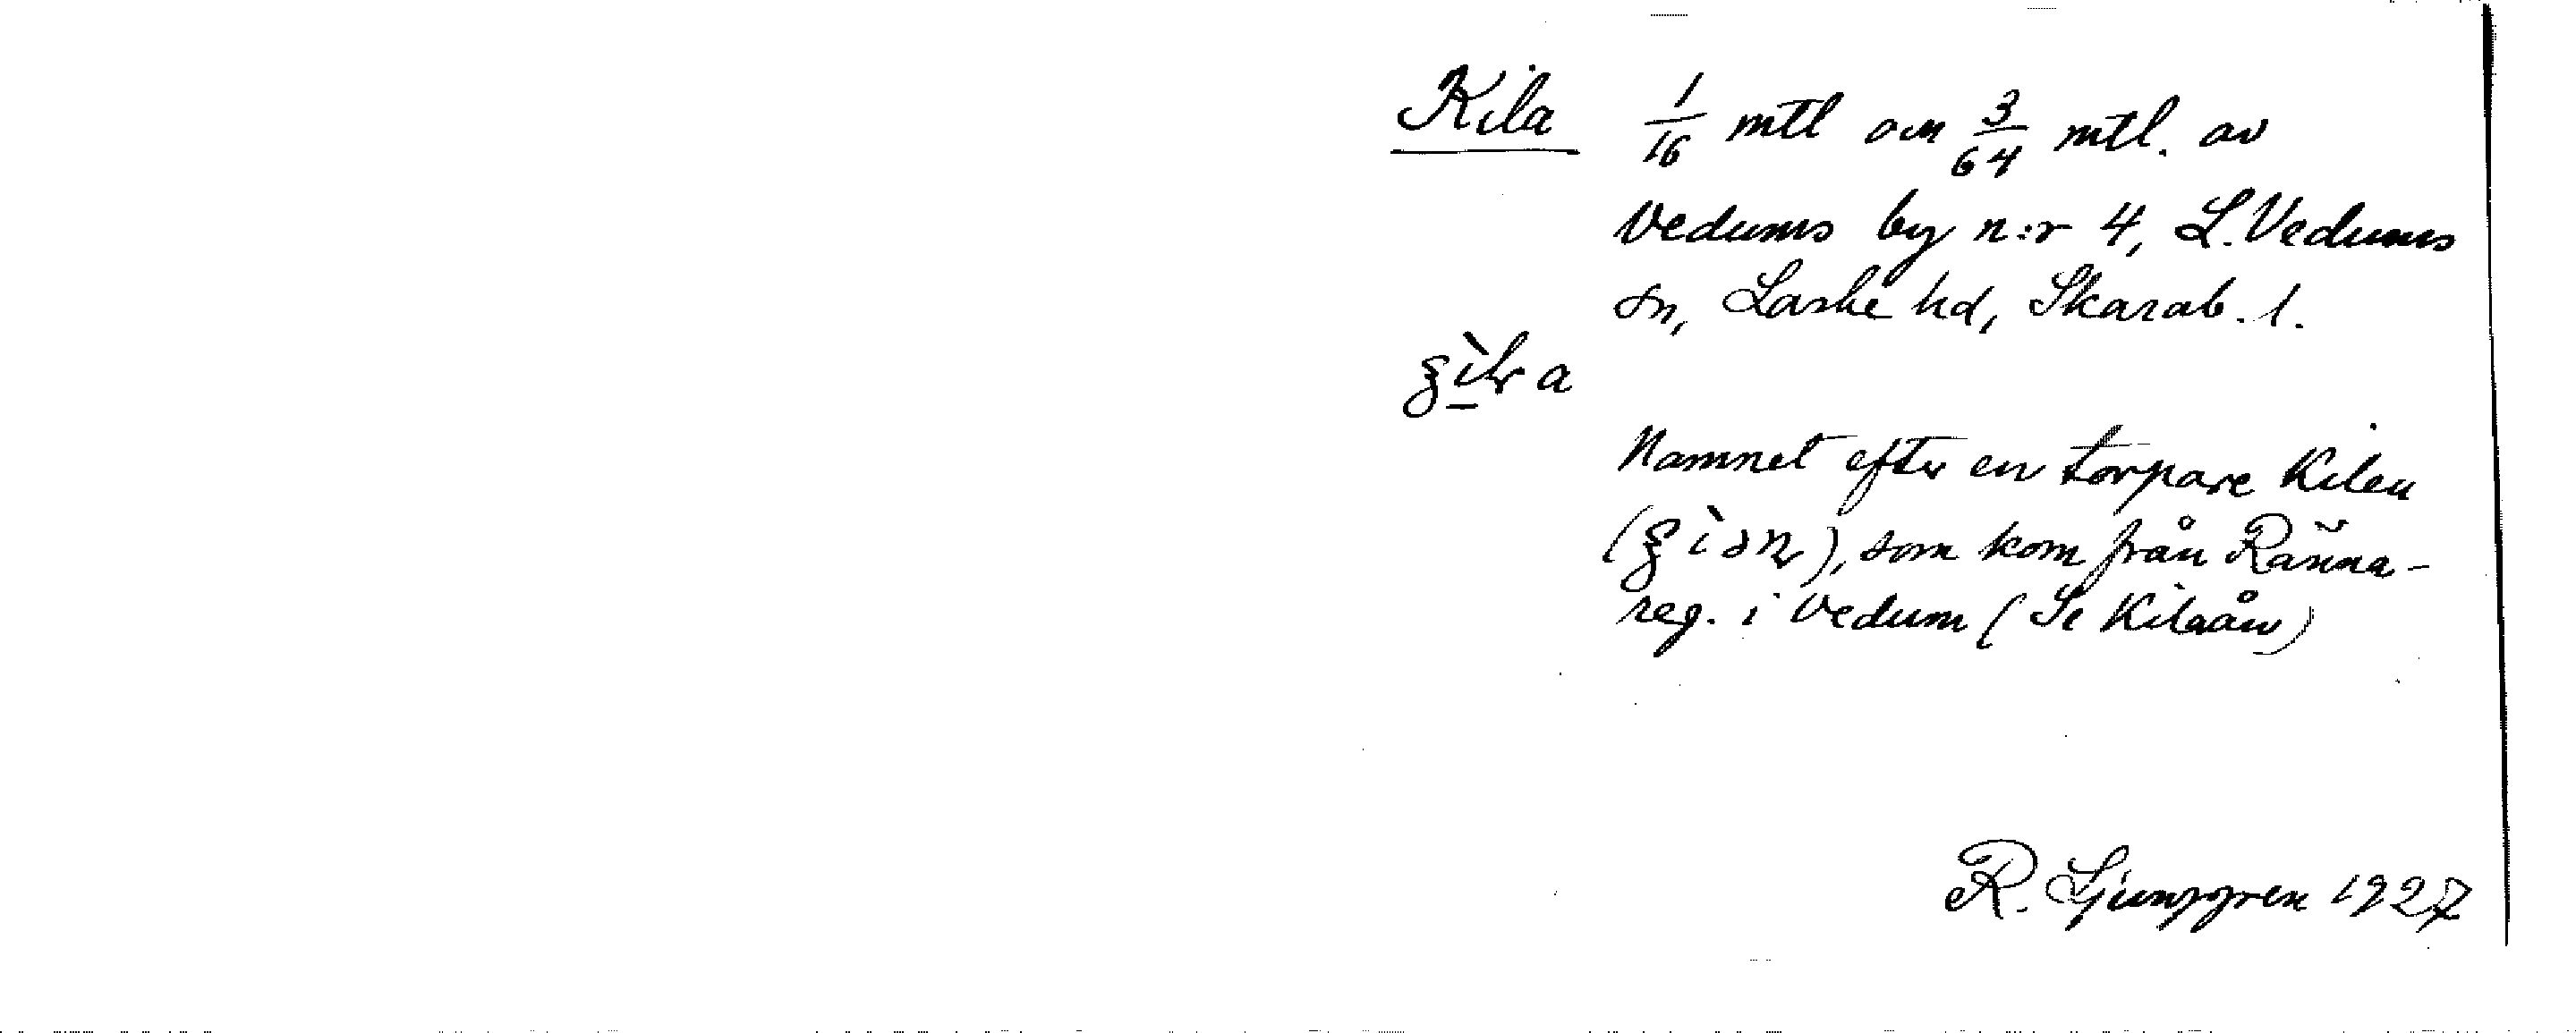 Kila 1/16 mtl om 3/64 mtl. av
Vedums by n:r 4, L. Vedums
sn, Laske hd, Skarab. l.
Namnet efter en torpare Kilen
som kom från Ränna-
reg. i Vedum (Se Kilaån)
R. Ljunggren 1927